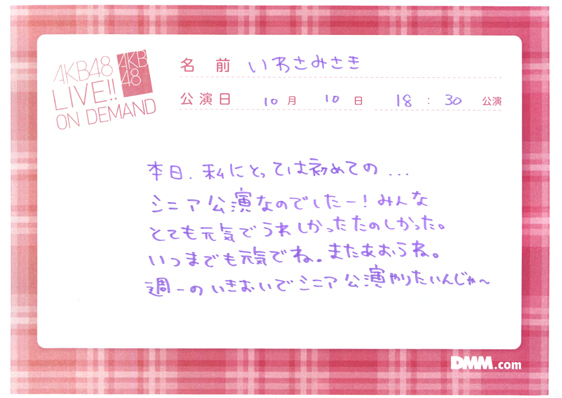 AKB48
LIVE!!
ON DEMAND
AKB
48
名前 いわさみさき
公演日 10月 10日 18:30 公演
本日、私にとっては初めての...
シニア公演なのでしたー!みんな
とても元気でうれしかったたのしかった。
いつまでも元気でね。またあおうね。
週一のいきおいでシニア公演やりたいんじゃ〜
DMM.com